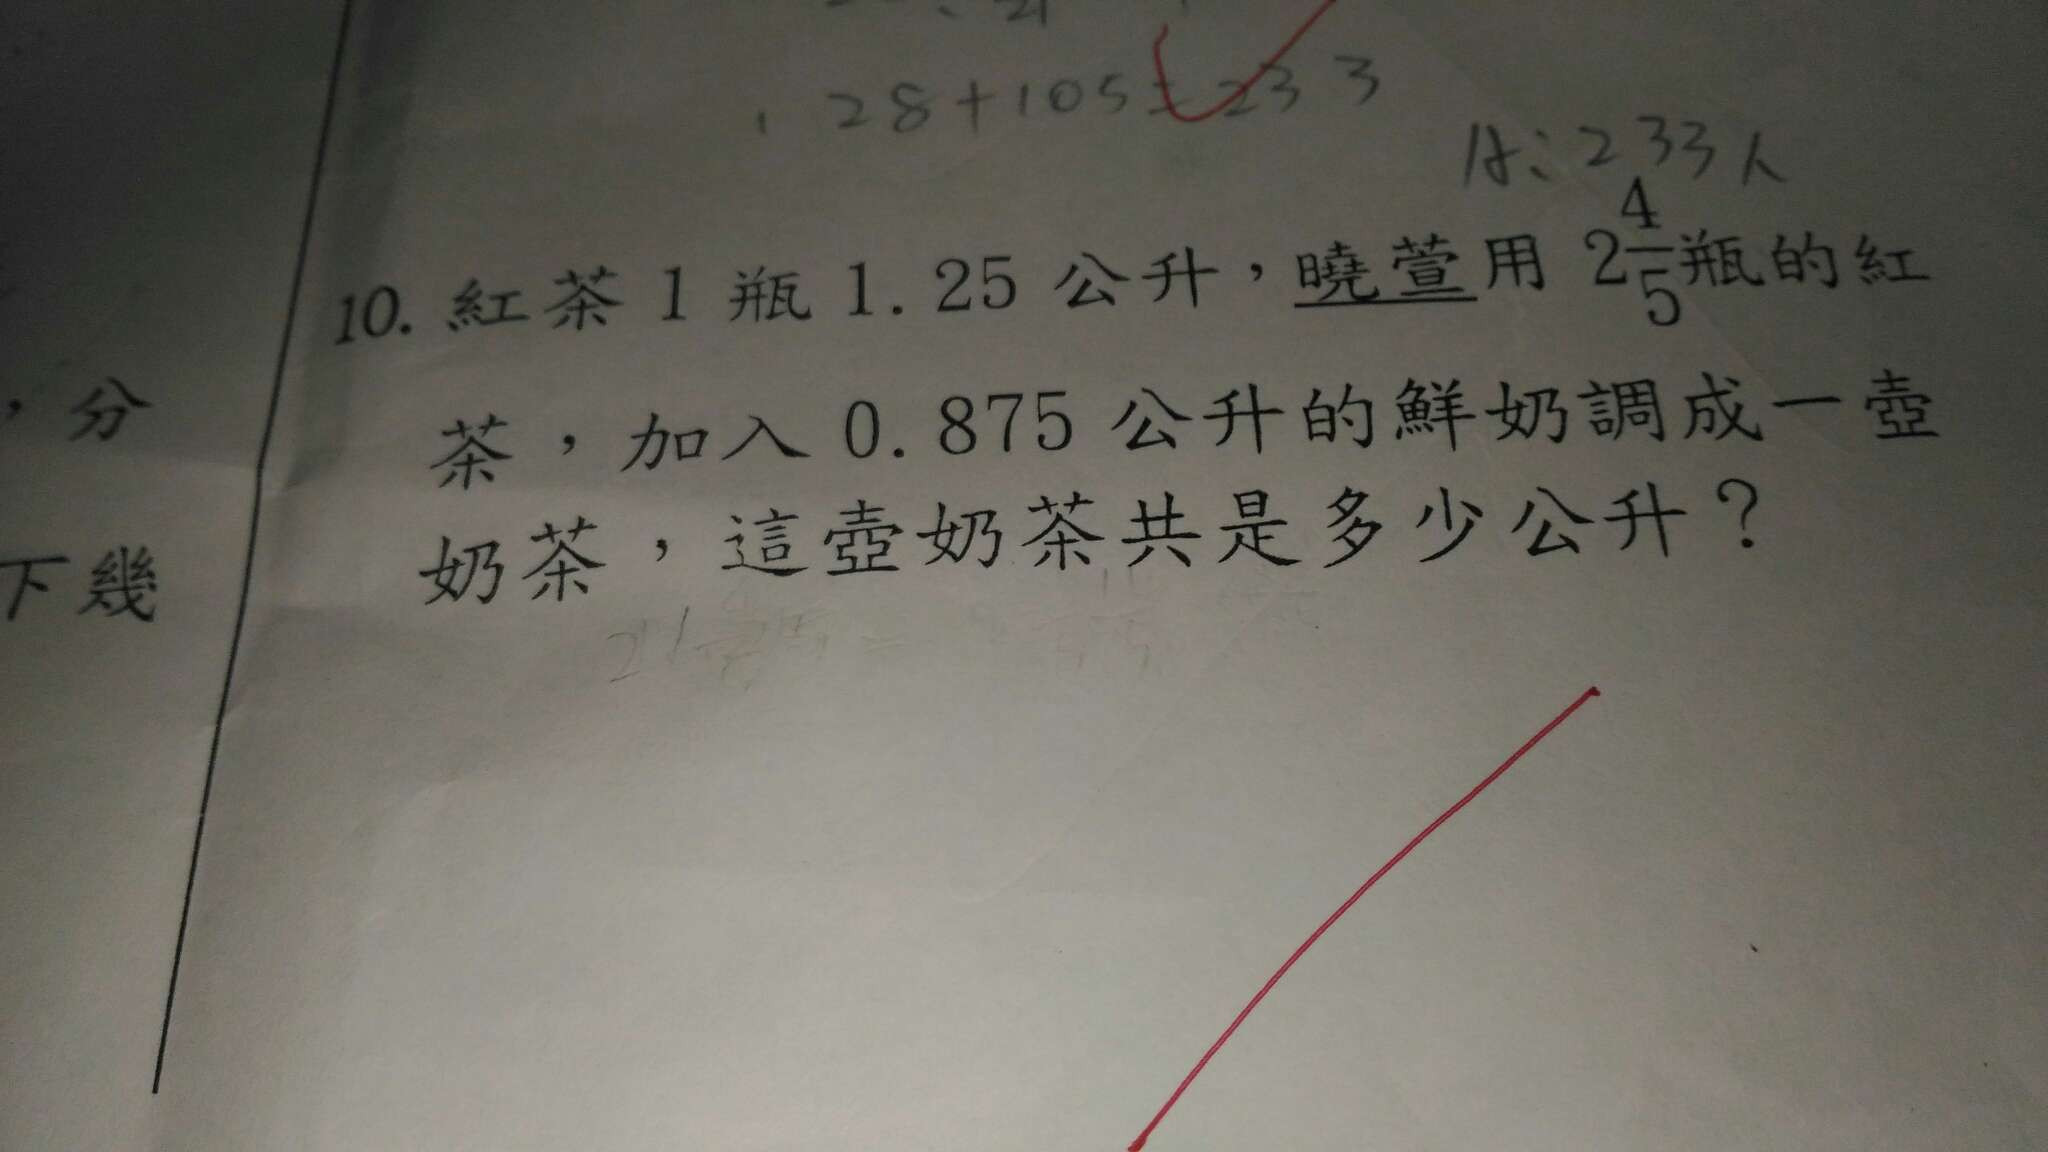 28+105=233
A:233人
10. 紅茶 1 瓶 1.25 公升，曉萱用 2 4/5 瓶的紅
茶，加入 0.875 公升的鮮奶調成一壺
奶茶，這壺奶茶共是多少公升？
，分
下幾